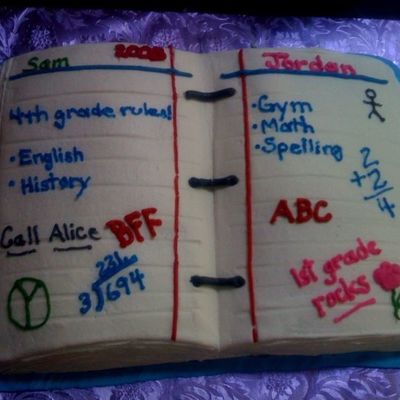 Sam 2008
4th grade rules!
• English
• History
Call Alice BFF
231
3)694
Jordan
• Gym
• Math
• Spelling
2
+2
4
ABC
1st grade
rocks